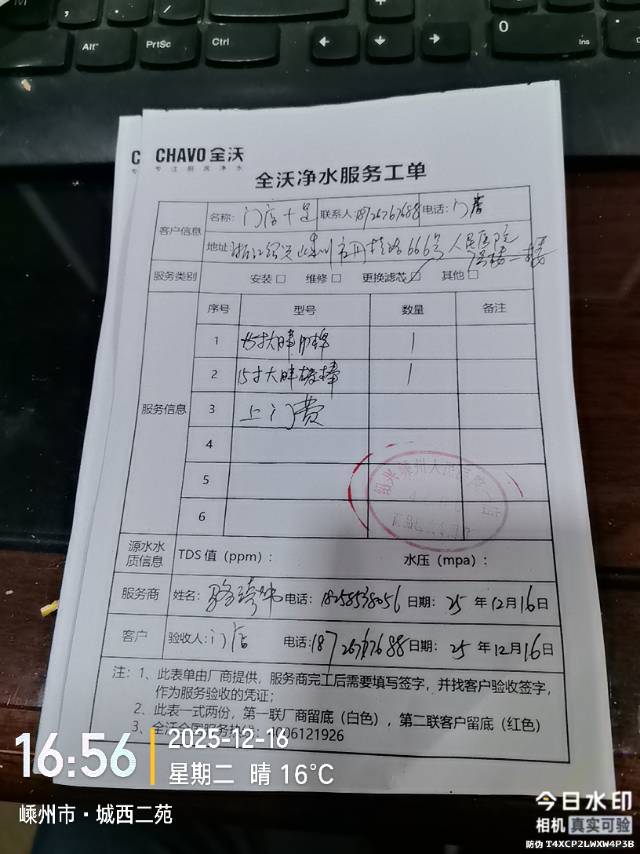 Alt
PrtSc
Ctrl
0
Ins
CHAVO 全沃
专注厨房净水
全沃净水服务工单
客户信息
名称：门店 联系人 电话：门店
地址：浙江绍兴嵊州市 666号 人民医院
服务类别 安装□ 维修□ 更换滤芯☑ 其他□
服务信息
序号 型号 数量 备注
1 1
2 15寸大胖 棒 1
3 上门费
4
5
6
源水水质信息 TDS 值（ppm）： 水压（mpa）：
服务商 姓名： 电话：18258538056 日期：25 年 12月16日
客户 验收人：门店 电话： 日期：25 年 12月16日
注：1、此表单由厂商提供，服务商完工后需要填写签字，并找客户验收签字，
作为服务验收的凭证；
2、此表一式两份，第一联厂商留底（白色），第二联客户留底（红色）
3、全沃全国服务热线：4006121926
16:56
2025-12-16
星期二 晴 16°C
嵊州市·城西二苑
今日水印
相机 真实可验
防伪 T4XCP2LWXW4P3B